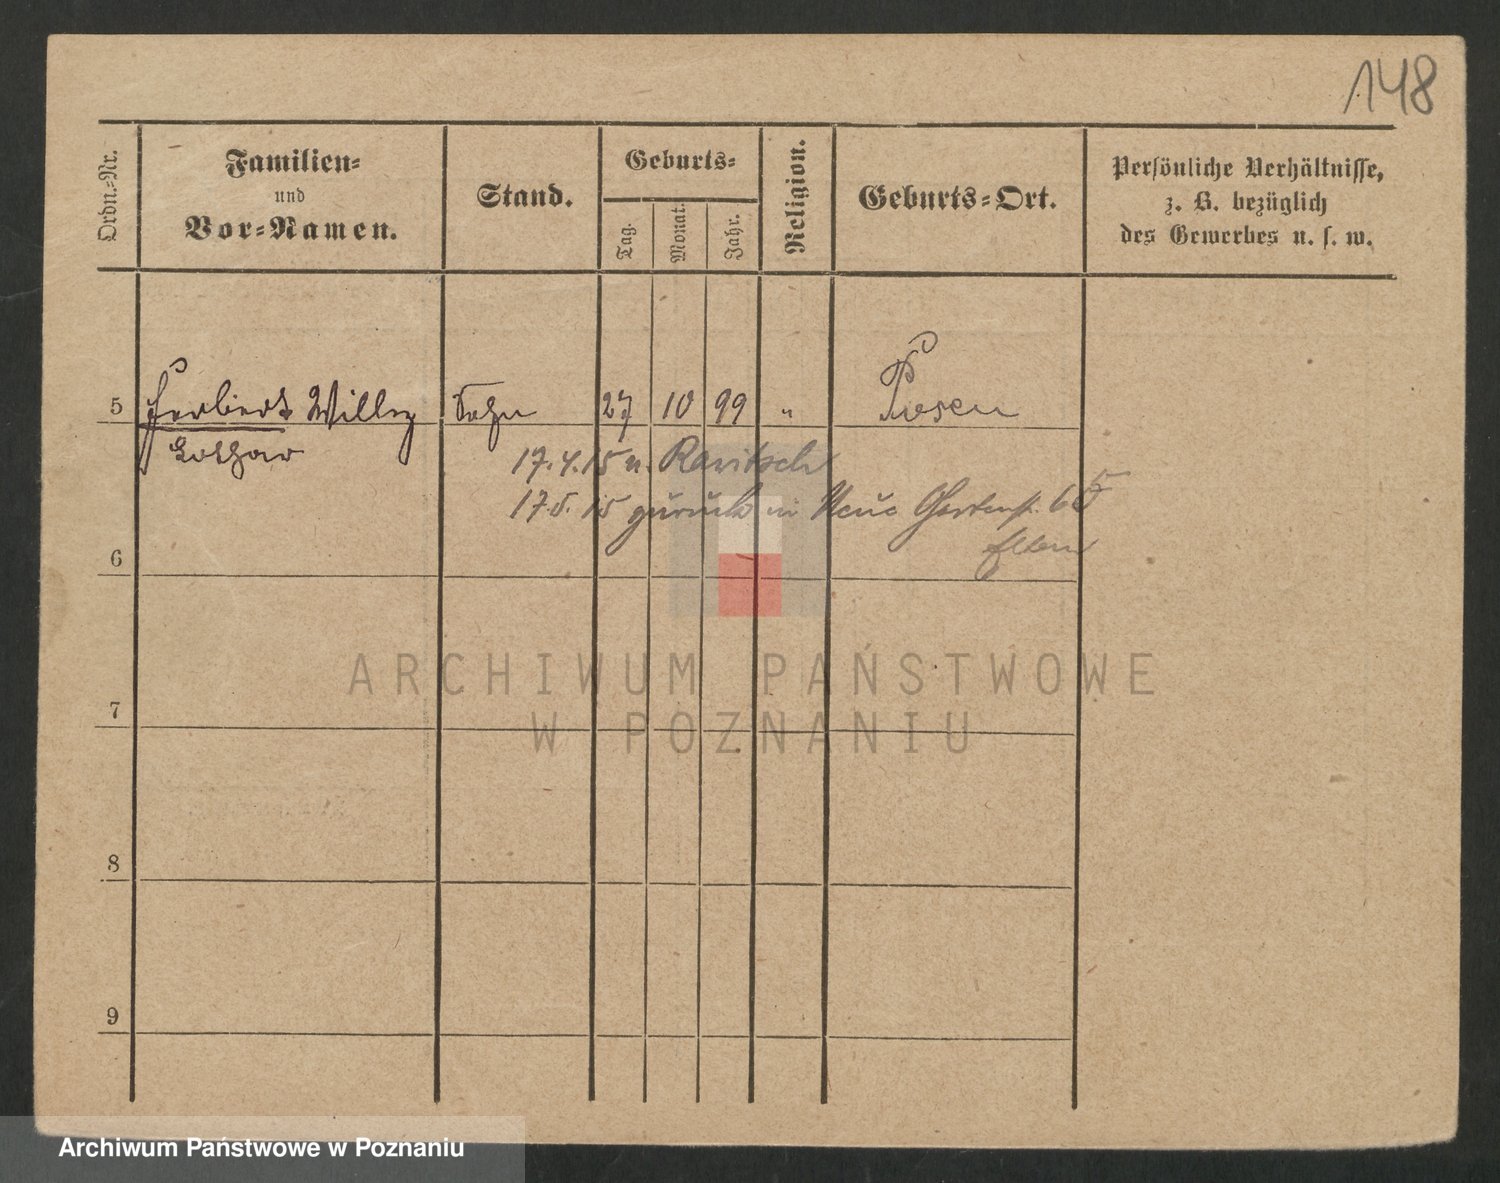 148
Ordn.-Nr.
Familien-
und
Vor-Namen.
Stand.
Geburts-
Tag.
Monat.
Jahr.
Religion.
Geburts-Ort.
Persönliche Verhältnisse,
z. B. bezüglich
des Gewerbes u. s. w.
5 Herbert Willy Sohn 27 10 99 " Posen
Lothar
17.4.15 n. Rawitsch
17.5.15 zurück in Neue Gartenstr. 65
Eltern
6
7
8
9
ARCHIWUM PAŃSTWOWE
W POZNANIU
Archiwum Państwowe w Poznaniu